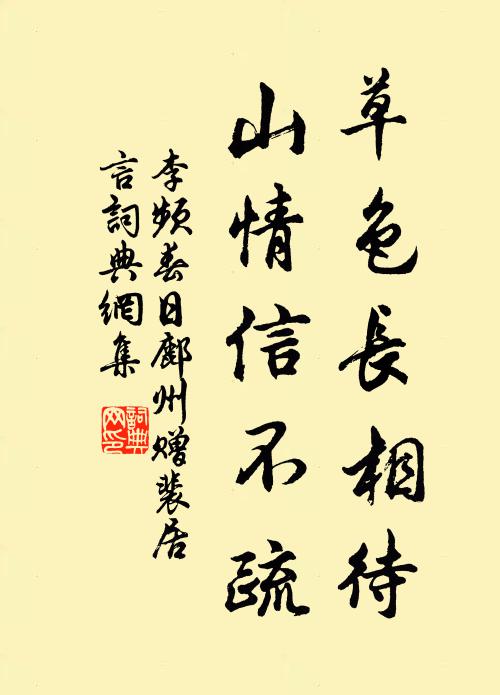 草色長相待
山情信不疏
李频春日鄜州赠裴居
言詞典網集
詞典网印